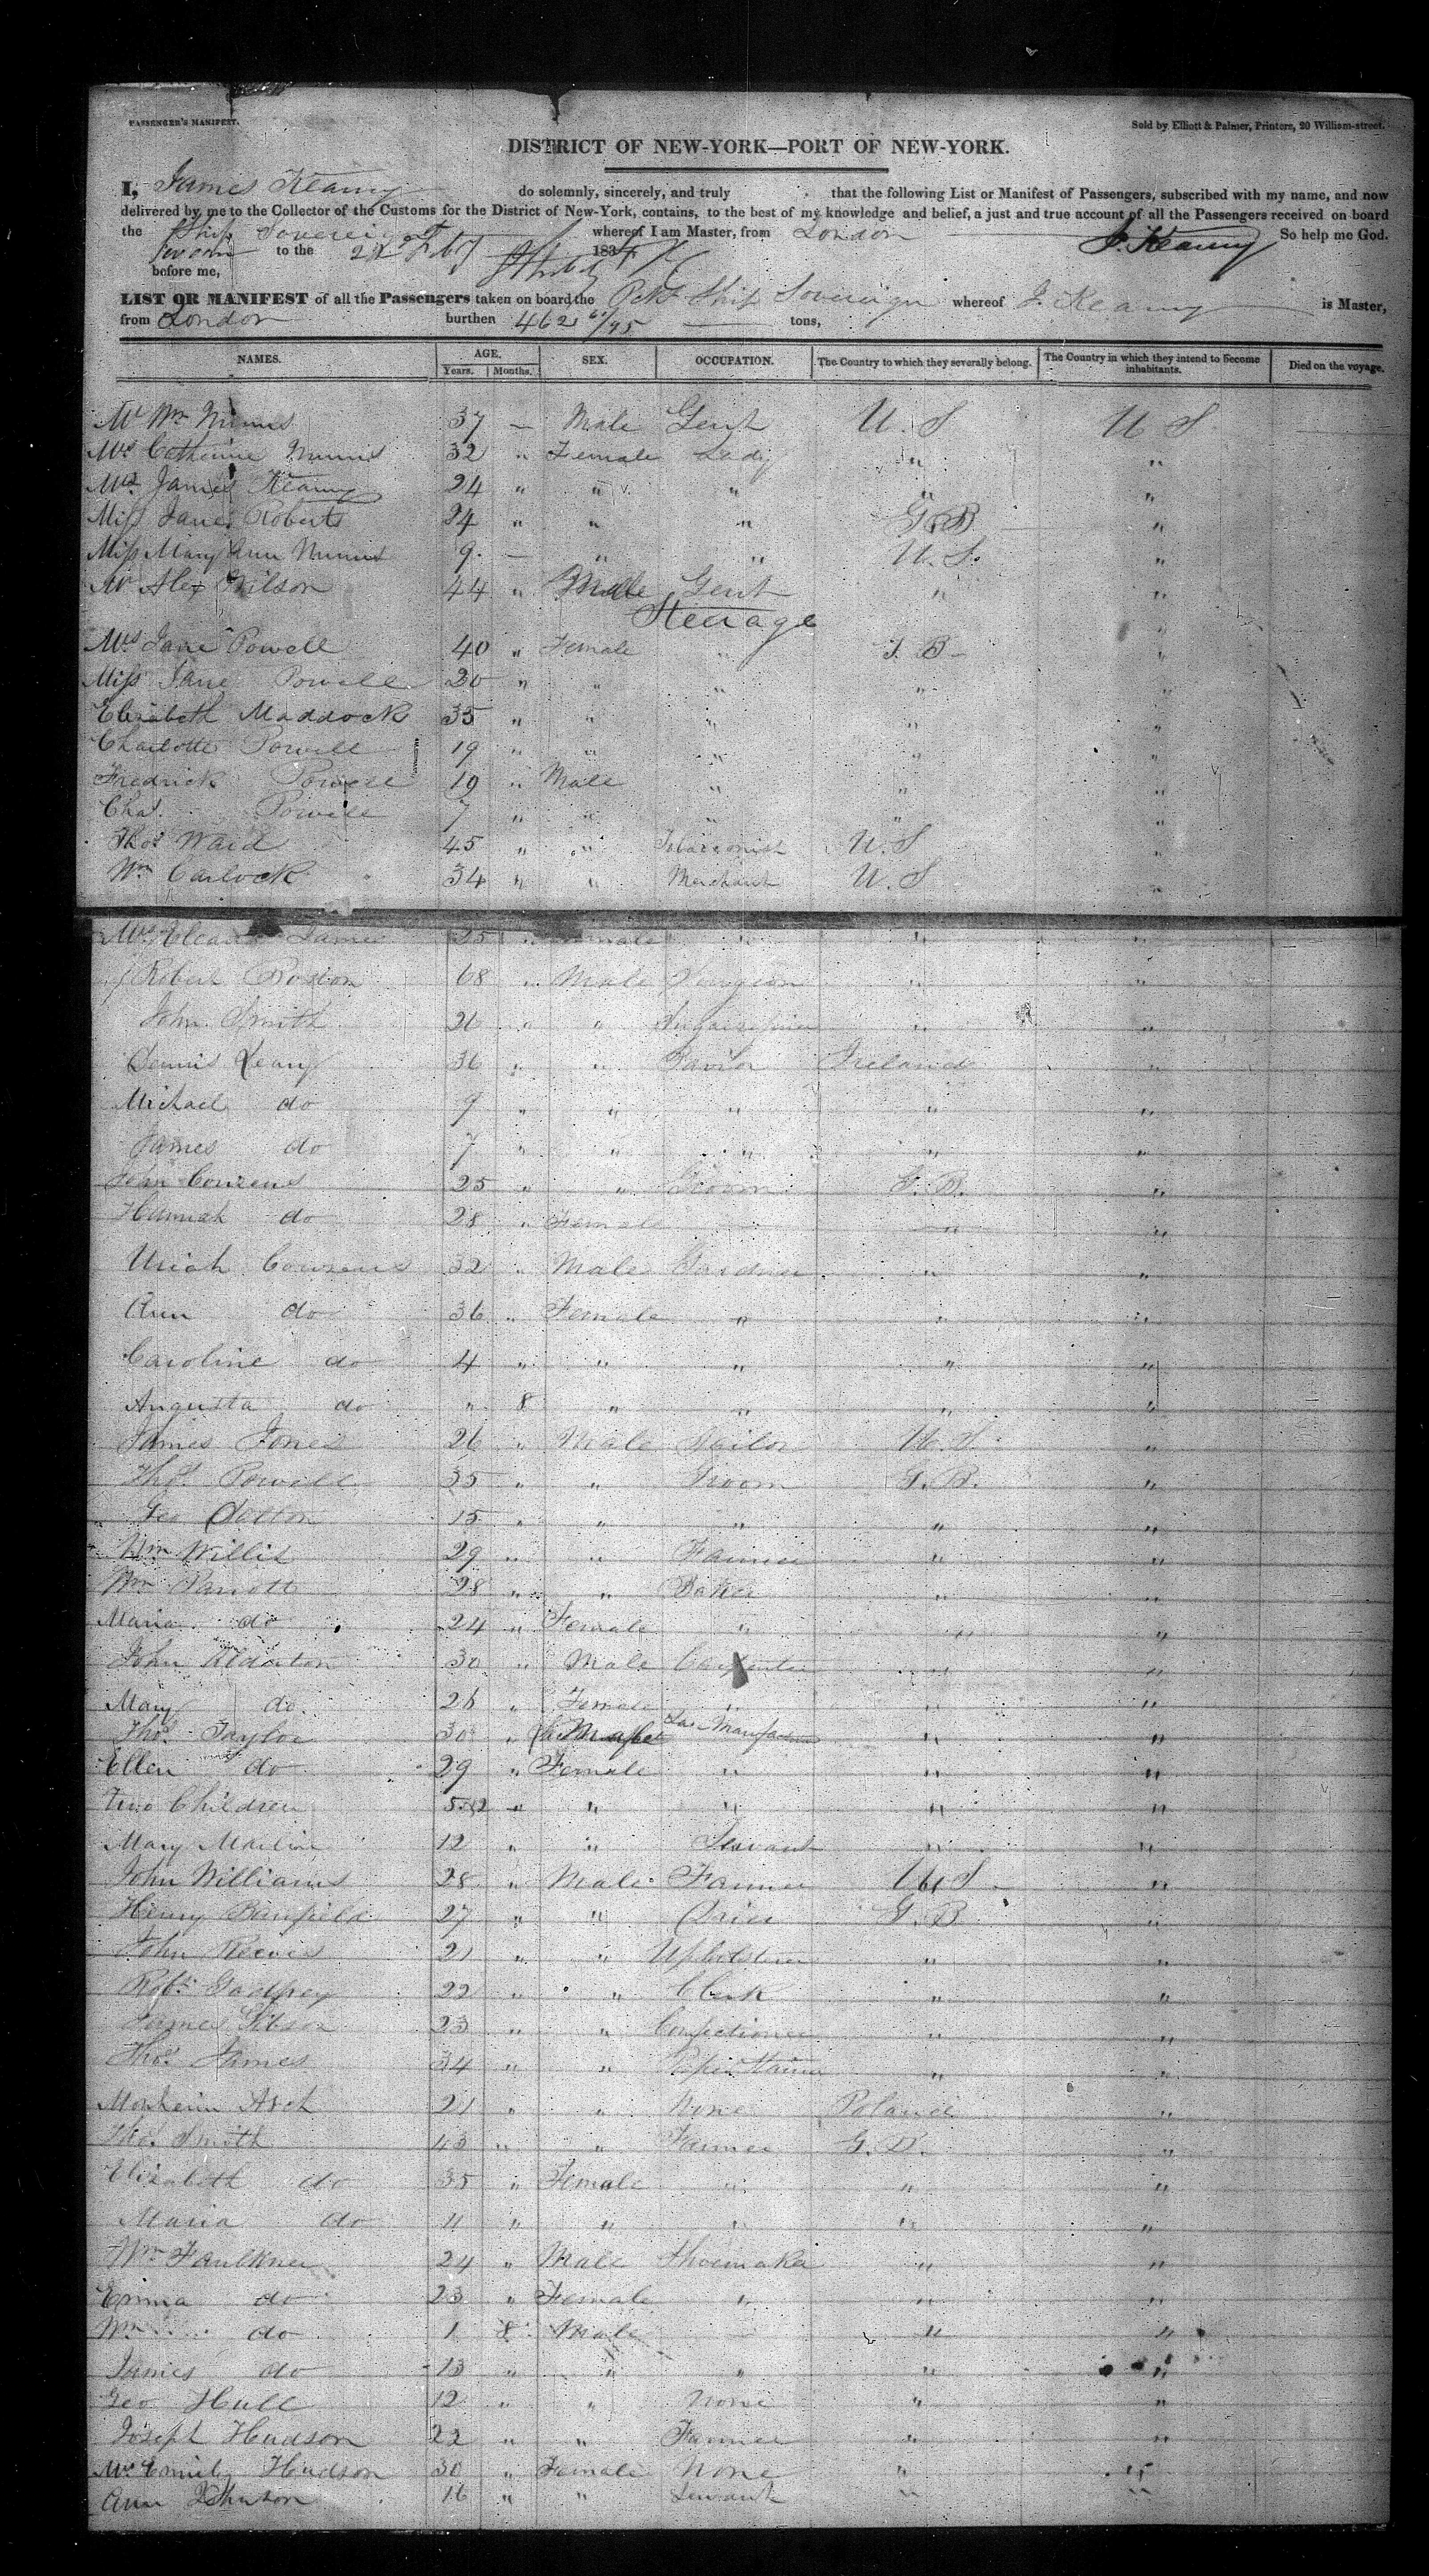 PASSENGER'S MANIFEST.
Sold by Elliott & Palmer, Printers, 20 William-street.
DISTRICT OF NEW-YORK—PORT OF NEW-YORK.
I, James Kearny do solemnly, sincerely, and truly that the following List or Manifest of Passengers, subscribed with my name, and now
delivered by me to the Collector of the Customs for the District of New-York, contains, to the best of my knowledge and belief, a just and true account of all the Passengers received on board
the Ship Sovereign whereof I am Master, from London So help me God.
Sworn to the 22 Feby 183 J. Kearny
before me,
LIST OR MANIFEST of all the Passengers taken on board the Pckt Ship Sovereign whereof J. Kearny is Master,
from London burthen 462 tons,
NAMES. AGE. SEX. OCCUPATION. The Country to which they severally belong. The Country in which they intend to become inhabitants. Died on the voyage.
Years. Months.
Mr Wm 37 — Male Gent U. S U S
Mrs Catherine 32 " Female Lady " "
Mrs James Kearny 24 " " " " "
Miss Jane Roberts 24 " " " G. B "
Miss Mary Ann 9 — " " U. S. "
Mr Alex Wilson 44 " Male Gent " "
Steerage
Mrs Jane Powell 40 " Female " G. B "
Miss Jane Powell 20 " " " " "
Elizabeth Maddock 35 " " " " "
Charlotte Powell 19 " " " " "
Fredrick Powell 19 " Male " " "
Chas. Powell 7 " " " " "
Thos Ward 45 " " Tobacconist U. S "
Wm Carlock 34 " " Merchant U. S "
Mrs James 25 " Female " " "
Robert 68 " Male Surgeon " "
John Smith 26 " " " "
Dennis Leary 36 " " Ireland "
Michael do 9 " " " " "
James do 7 " " " " "
John Couzens 25 " " Groom G. B. "
Hannah do 28 " Female " "
Uriah Couzens 32 " Male Gardner " "
Ann do 36 " Female " " "
Caroline do 4 " " " " "
Augusta do " 8 " " " "
James Jones 26 " Male U. S. "
Thos. Powell 35 " " Groom G. B. "
Geo 15 " " " " "
Wm Willis 29 " " Farmer " "
Wm Parrott 28 " " Baker " "
Maria do 24 " Female " " "
John Alderton 30 " Male Carpenter " "
Mary do 26 " Female " " "
Thos. Taylor 30 " Male " "
Ellen do 29 " Female " " "
Two Children 5 & 2 " " " " "
Mary Martin 12 " " Servant " "
John Williams 28 " Male Farmer U. S "
Henry Banfield 27 " " G. B "
John Reeves 21 " " Upholsterer " "
Robt Godfrey 22 " " Clerk " "
James Gibson 23 " " Confectioner " "
Thos. James 34 " " " "
Asch 21 " " None Poland "
Thos. Smith 43 " " Farmer G. B. "
Elizabeth do 35 " Female " " "
Maria do 11 " " " " "
Wm Faulkner 24 " Male Shoemaker " "
Emma do 23 " Female " " "
Wm do 1 8 Male " "
James do 13 " " " " "
Geo Hull 12 " " None " "
Joseph Hudson 22 " " Farmer " "
Mrs Emily Hudson 30 " Female None " "
Ann Johnson 16 " " Servant " "